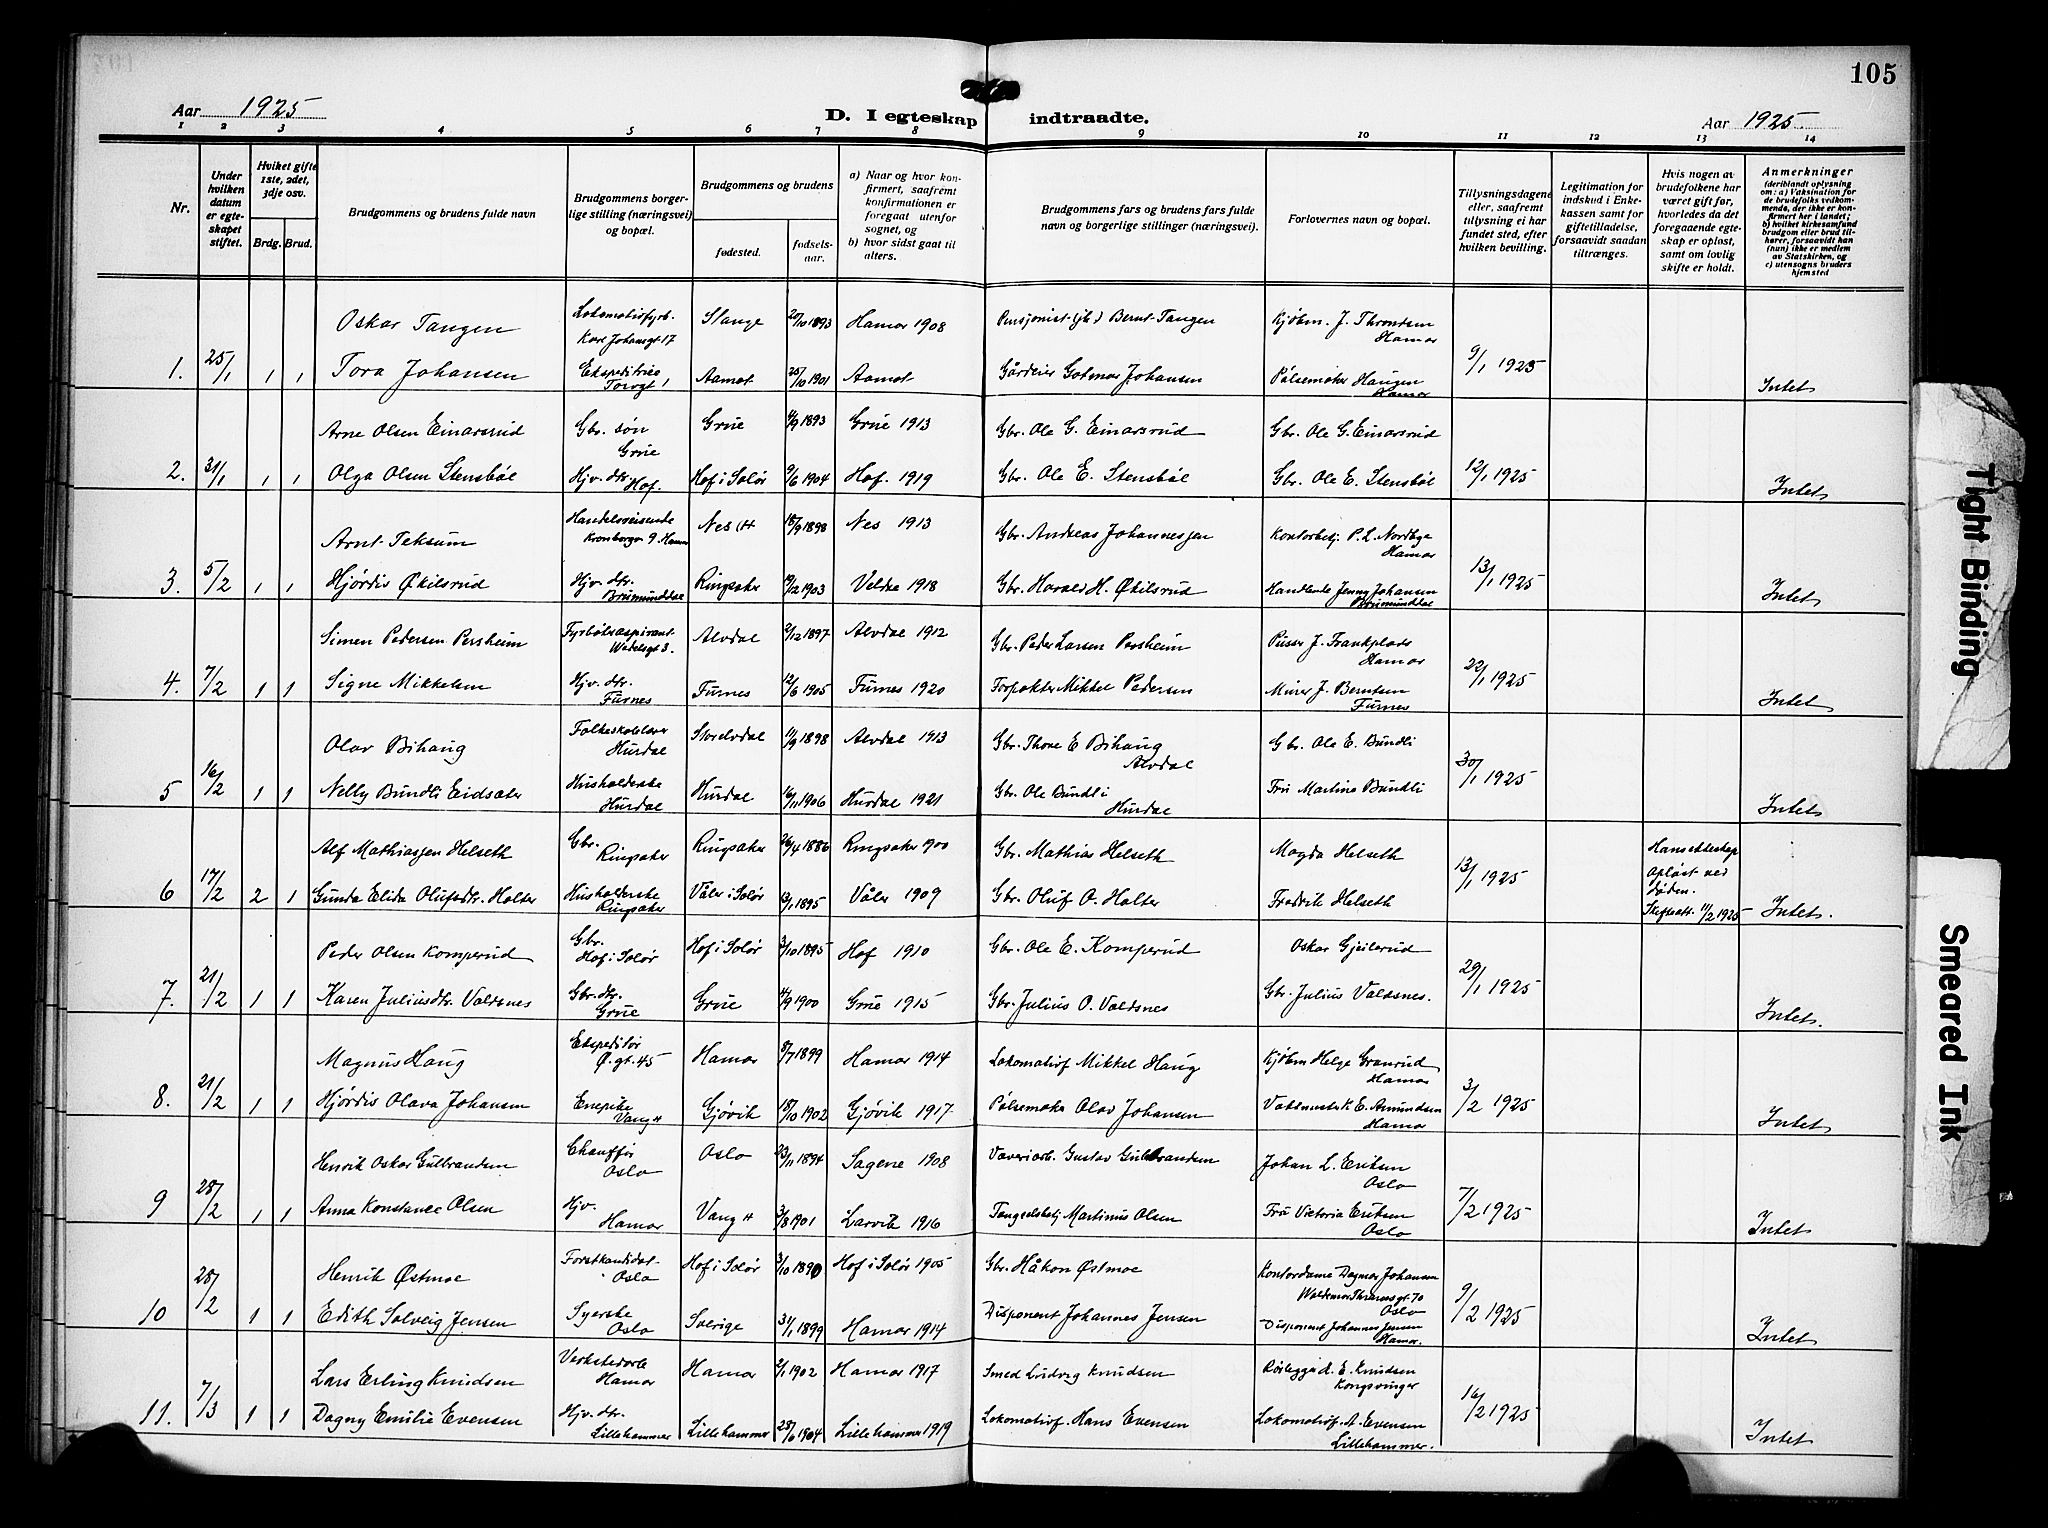 105
Aar 1925
D. I egteskap indtraadte.
Aar 1925.
1 2 3 4 5 6 7 8 9 10 11 12 13 14
Nr.
Under
hvilken
datum
er egte-
skapet
stiftet.
Hvilket gifte
1ste, 2det,
3dje osv.
Brdg. Brud.
Brudgommens og brudens fulde navn
Brudgommens borger-
lige stilling (næringsvei)
og bopæl.
Brudgommens og brudens
fødested.
fødsels-
aar.
a) Naar og hvor kon-
firmert, saafremt
konfirmationen er
foregaat utenfor
sognet, og
b) hvor sidst gaat til
alters.
Brudgommens fars og brudens fars fulde
navn og borgerlige stillinger (næringsvei).
Forlovernes navn og bopæl.
Tillysningsdagene
eller, saafremt
tillysning ei har
fundet sted, efter
hvilken bevilling.
Legitimation for
indskud i Enke-
kassen samt for
giftetilladelse,
forsaavidt saadan
tiltrænges.
Hvis nogen av
brudefolkene har
været gift før,
hvorledes da det
foregaaende egte-
skap er opløst,
samt om lovlig
skifte er holdt.
Anmerkninger
(deriblandt oplysning
om: a) Vaksination for
de brudefolks vedkom-
mende, der ikke er kon-
firmert her i landet;
b) hvilket kirkesamfund
brudgom eller brud til-
hører, forsaavidt han
(hun) ikke er medlem
av Statskirken, og
c) utensogns bruders
hjemsted
Oskar Tangen Lokomotivfyrb. Karl Johansgt 17 Stange 20/10 1893 Hamar 1908 Pensjonist (jb.) Bernt Tangen Kjøbm. J. Throndsen Hamar
1. 25/1 1 1 Tora Johansen Ekspeditrise Torvgt 1 Aamot 25/10 1901 Aamot Gotmar Johansen Pølsemaker Haugen Hamar 9/1 1925 Intet
Arne Olsen Einarsrud Gbr. søn Grue Grue 4/9 1893 Grue 1913 Gbr. Ole G. Einarsrud Gbr. Ole G. Einarsrud
2. 31/1 1 1 Olga Olsen Stensbøl Hjv. dtr. Hof. Hof i Solør 9/6 1904 Hof. 1919 Gbr. Ole E. Stensbøl Gbr. Ole E. Stensbøl 12/1 1925 Intet
Arnt Teksum Handelsreisende Kronborgv 9. Hamar Nes H 18/9 1898 Nes 1913 Gbr. Andreas Johannessen Kontorbetj. P. L. Nordbye Hamar
3. 5/2 1 1 Hjørdis Økilsrud Hjv. dtr. Brumunddal Ringsaker 19/12 1903 Veldre 1918 Gbr. Harald H. Økilsrud Handlende Jenny Johansen Brumunddal 13/1 1925 Intet
Simen Pedersen Persheim Fyrbøteraspirant Wedelsgt 3. Alvdal 2/12 1897 Alvdal 1912 Gbr. Peder Larsen Persheim Pusser J. Frankplads Hamar
4. 7/2 1 1 Signe Mikkelsen Hjv. dtr. Furnes Furnes 12/6 1905 Furnes 1920 Forpakter Mikkel Pedersen Murer J. Berntsen Furnes 22/1 1925 Intet
Olav Bihaug Folkeskolelærer Hurdal Storelvdal 11/9 1898 Alvdal 1913 Gbr. Thore E Bihaug Alvdal Gbr. Ole E. Bundli
5 16/2 1 1 Nelly Bundli Eidsæter Husholderske Hurdal Hurdal 16/11 1906 Hurdal 1921 Gbr. Ole Bundli Hurdal Fru Martine Bundli 30/1 1925 Intet
Alf Mathiassen Helseth Gbr. Ringsaker Ringsaker 26/4 1886 Ringsaker 1900 Gbr. Mathias Helseth Magda Helseth Hans ekteskap opløst ved døden. Skifteatt. 11/2 1925
6 17/2 2 1 Gunda Elida Olufsdtr. Halter Husholderske Ringsaker Våler i Solør 13/1 1895 Våler 1909 Gbr. Oluf O. Halter Fredrik Helseth 13/1 1925 Intet.
Peder Olsen Komperud Gbr. Hof i Solør Hof i Solør 3/10 1895 Hof 1910 Gbr. Ole E. Komperud Oskar Gjeilerud
7. 21/2 1 1 Karen Juliusdtr. Valdsnes Gbr. dtr. Grue Grue 4/9 1900 Grue 1915 Gbr. Julius O. Valdsnes Gbr. Julius Valdsnes. 29/1 1925 Intet.
Magnus Haug Ekspeditør Ø. gt. 45 Hamar 8/7 1899 Hamar 1914 Lokomotivf Mikkel Haug Kjøbm Helge Granrud Hamar
8. 21/2 1 1 Hjørdis Olava Johansen Enepike Vang H Gjøvik 18/10 1902 Gjøvik 1917 Pølsemaker Olav Johansen K. E. Amundsen Hamar 3/2 1925 Intet
Henrik Oskar Gulbrandsen Chauffør Oslo Oslo 23/11 1894 Sagene 1908 Væveriarb. Gustav Gulbrandsen Johan L. Eriksen Oslo
9 28/2 1 1 Anna Konstance Olsen Hjv. Hamar Vang H 3/8 1901 Larvik 1916 Martinius Olsen Fru Victoria Eriksen Oslo 7/2 1925 Intet
Henrik Østmoe Forstkandidat Oslo Hof i Solør 3/10 1890 Hof i Solør 1905 Gbr. Håkon Østmoe Kontordame Dagmar Johansen Waldemar Thranesgt 70 Oslo
10 28/2 1 1 Edith Solveig Jensen Syerske Oslo Sverige 31/1 1899 Hamar 1914 Disponent Johannes Jensen Disponent Johannes Jensen Hamar. 9/2 1925 Intet
Lars Erling Knudsen Verkstedarb Hamar Hamar 2/1 1902 Hamar 1917 Smed Ludvig Knudsen Rørlegger K. E. Knudsen Kongsvinger
11. 7/3 1 1 Dagny Emilie Evensen Hjv. dtr. Lillehammer Lillehammer 28/6 1904 Lillehammer 1919 Lokomotivf. Hans Evensen Lokomotivf. A. Evensen Lillehammer. 16/2 1925 Intet
Tight Binding
Smeared Ink